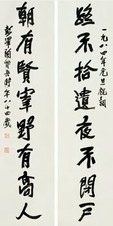 路不拾遺夜不閉戶
一九八四年元旦
朝有賢宰野有高人
八十四歲